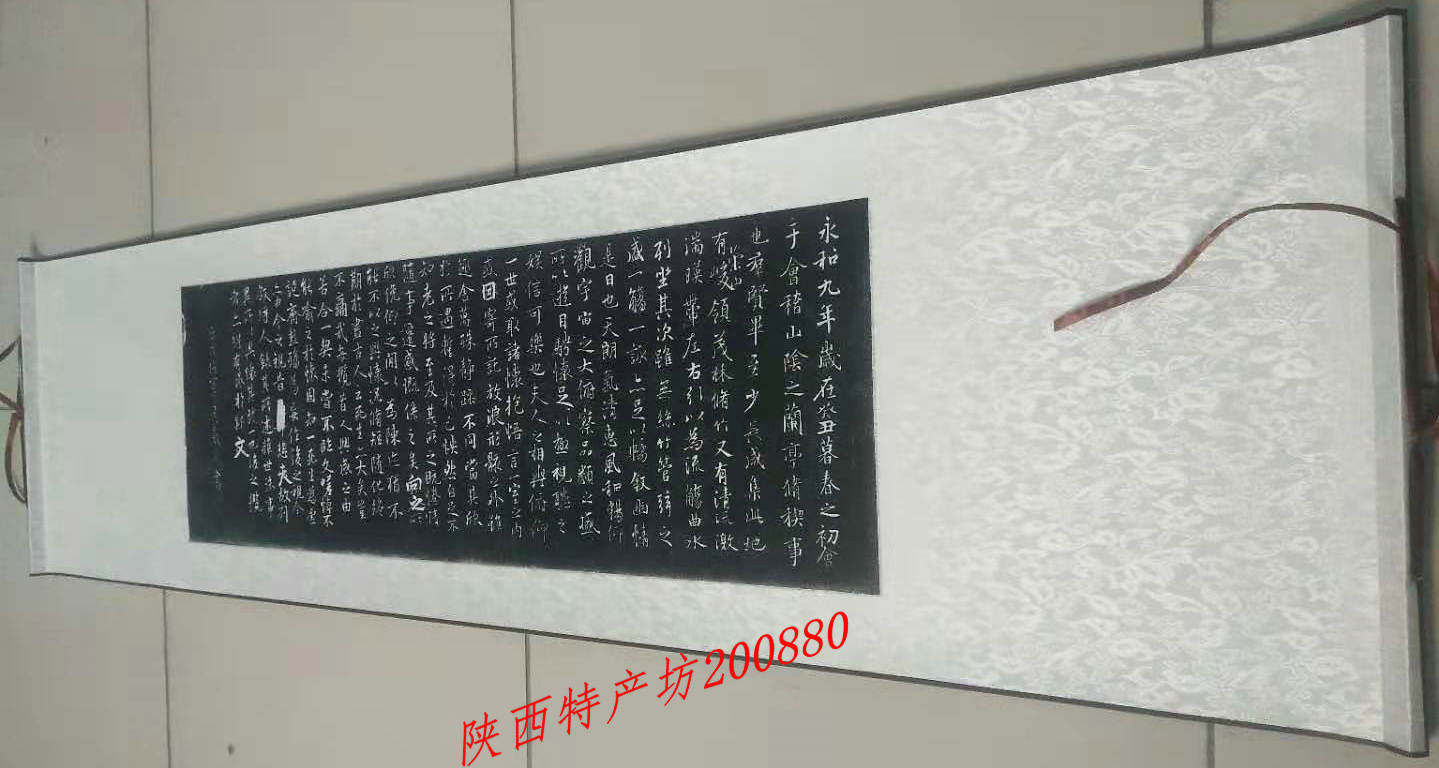 永和九年歲在癸丑暮春之初會
于會稽山陰之蘭亭脩稧事
也羣賢畢至少長咸集此地
有峻領茂林脩竹又有清流激
崇山
湍暎帶左右引以為流觴曲水
列坐其次雖無絲竹管弦之
盛一觴一詠亦足以暢敘幽情
是日也天朗氣清惠風和暢仰
觀宇宙之大俯察品類之盛
所以遊目騁懷足以極視聽之
娛信可樂也夫人之相與俯仰
一世或取諸懷抱悟言一室之內
或因寄所託放浪形骸之外雖
趣舍萬殊靜躁不同當其欣
於所遇暫得於己快然自足不
知老之將至及其所之既惓情
隨事遷感慨係之矣向之
俛仰之間以為陳迹猶不
能不以之興懷況脩短隨化終
期於盡古人云死生亦大矣豈
不痛哉每攬昔人興感之由
若合一契未嘗不臨文嗟悼不
能喻之於懷固知一死生為虛
文
陕西特产坊200880